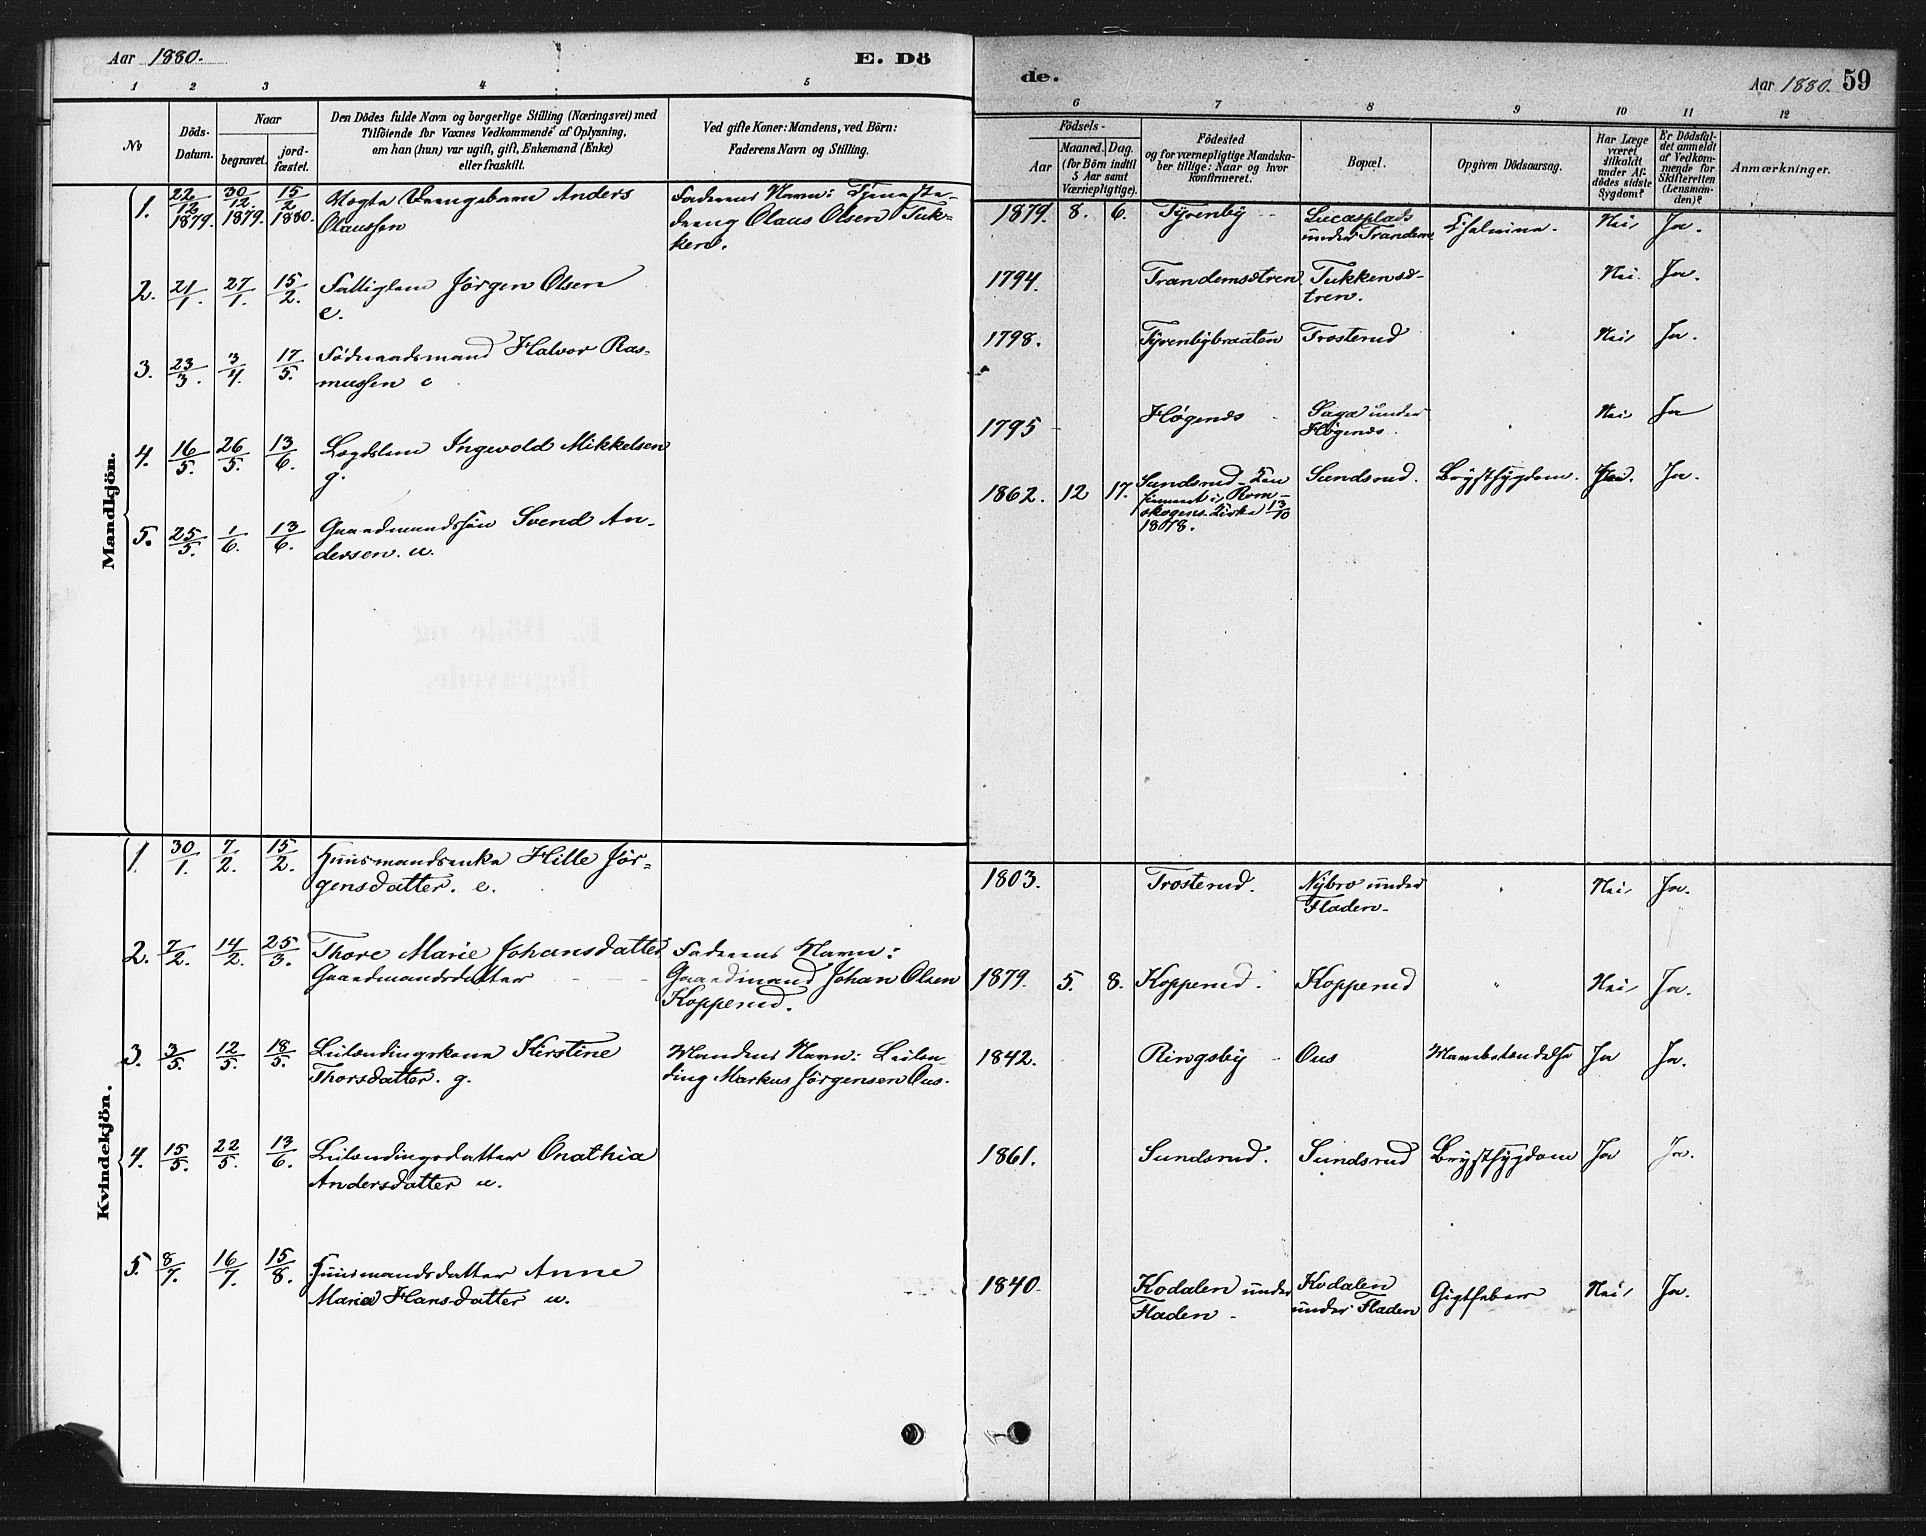 Aar 1880.
E. Dö
1 2 3 4 5
No
Döds-Datum.
Naar
begravet.
jord-fæstet.
Den Dödes fulde Navn og borgerlige Stilling (Næringsvei) med
Tilföiende for Voxnes Vedkommende af Oplysning,
om han (hun) var ugift, gift, Enkemand (Enke)
eller fraskilt.
Ved gifte Koner: Mandens, ved Börn:
Faderens Navn og Stilling.
Mandkjön.
1. 22/12 1879. 30/12 1879. 15/2 1880. Uægte Drengebarn Anders
Olaussen
Faderens Navn: Tjeneste-
dreng Olaus Olsen Tuk-
ken.
2. 21/1. 27/1. 15/2. Fattiglem Jörgen Olsen
e.
3. 23/3. 3/4. 17/5. Föderaadsmand Halvor Ras-
mussen e
4. 16/5. 26/5. 13/6. Lægdslem Ingevold Mikkelsen
g.
5. 25/5. 1/6. 13/6. Gaardmandssön Svend An-
dersen. u.
Kvindekjön.
1. 30/1. 7/2. 15/2. Huusmandsenke Hille Jör-
gensdatter. e.
2. 7/2. 14/2. 25/3. Thore Marie Johansdatter
Gaardmandsdatter
Faderens Navn:
Gaardmand Johan Olsen
Kopperud.
3. 3/5. 12/5. 18/5. Leilændingskone Kirstine
Thorsdatter. g.
Mandens Navn: Leilen-
ding Markus Jörgensen Ous.
4. 15/5. 22/5. 13/6. Leilændingsdatter Onathia
Andersdatter u.
5. 8/7. 16/7. 15/8. Huusmandsdatter Anne
Maria Hansdatter u.
de.
Aar 1880. 59
6 7 8 9 10 11 12
Födsels-
Aar
Maaned. Dag.
(for Börn indtil
5 Aar samt
Værnepligtige).
Födested
og for værnepligtige Mandska-
ber tillige: Naar og hvor
konfirmeret.
Bopæl.
Opgiven Dödsaarsag.
Har Læge
været
tilkaldt
under Af-
dödes sidste
Sygdom?
Er Dödsfal-
det anmeldt
af Vedkom-
mende for
Skifteretten
(Lensman-
den)?
Anmærkninger.
1879. 8. 6. Tyrenby Lucasplads
under Trandem Nei, Ja.
1794. Trandemsætren Tukkensæ-
tren. Nei. Ja.
1798. Tyrenbybraaten Trosterud Nei, Ja.
1795 Högenæs Saga under
Högenæs. Nei, Ja
1862. 12 17. Sundsrud - Kon
firmeret i Rom-
skogens Kirke 13/10
1878.
Sundsrud. Brystsygdom. Ja. Ja.
1803. Trosterud. Nybro under
Fladen. Nei, Ja.
1879. 5. 8. Kopperud. Kopperud " Nei, Ja.
1842. Ringsby Ous Ja Ja.
1861. Sundsrud. Sundsrud Brystsygdom Ja Ja.
1840. Kodalen under
Fladen
Kodalen
under Fladen Gigtfeber Nei, Ja.